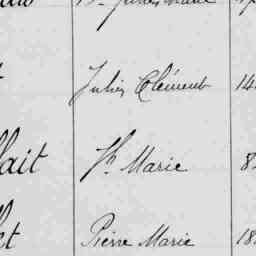 Jules Clément 14
lait Jh Marie 8
et Pierre Marie 18